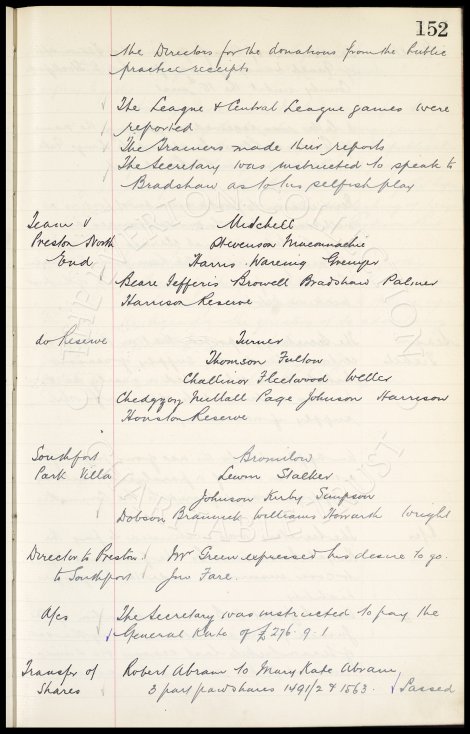 152
the Directors for the donations from the Public
practice receipts
The League & Central League games were
reported
The Trainers made their reports
The Secretary was instructed to speak to
Bradshaw as to his selfish play
Team v Mitchell
Preston North Stevenson Maconnachie
End Harris Wareing Grenyer
Beare Jefferis Browell Bradshaw Palmer
Harrison Reserve
do Reserve Turner
Thomson Fulton
Challinor Fleetwood Weller
Chedgzoy Nuttall Page Johnson Harrison
Houston Reserve
Southport Bromilow
Park Villa Lewin Stalker
Johnson Kirby Simpson
Dobson Brannick Williams Howarth Wright
Director to Preston Mr Green expressed his desire to go.
to Southport Jno Fare.
A/cs The Secretary was instructed to pay the
General Rate of £276. 9. 1
Transfer of Robert Abram to Mary Kate Abram
Shares 3 part paid shares 1491/2 & 1563. Passed